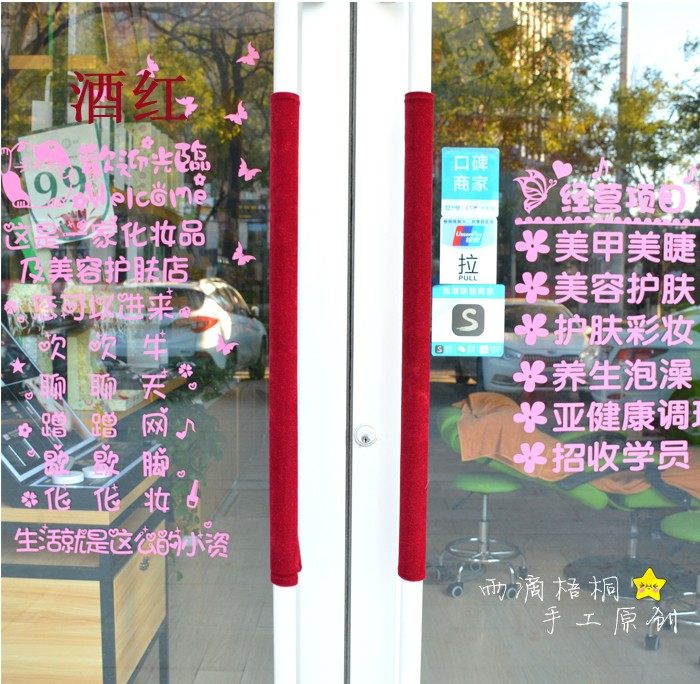 酒红
99
欢迎光臨
Welcome
这是一家化妆品
及美容护肤店
您可以进来
吹 吹 牛
聊 聊 天
蹭 蹭 网
歇 歇 脚
化 化 妆
生活就是这么的小资
口碑
商家
UnionPay
银联
拉
PULL
S
经营项目
美甲美睫
美容护肤
护肤彩妆
养生泡澡
亚健康调理
招收学员
雨滴梧桐
手工原创